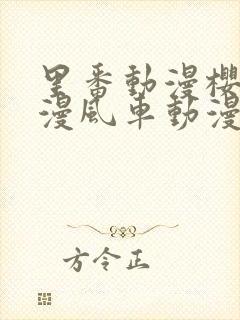 里番動漫櫻
漫風車動漫
方令正